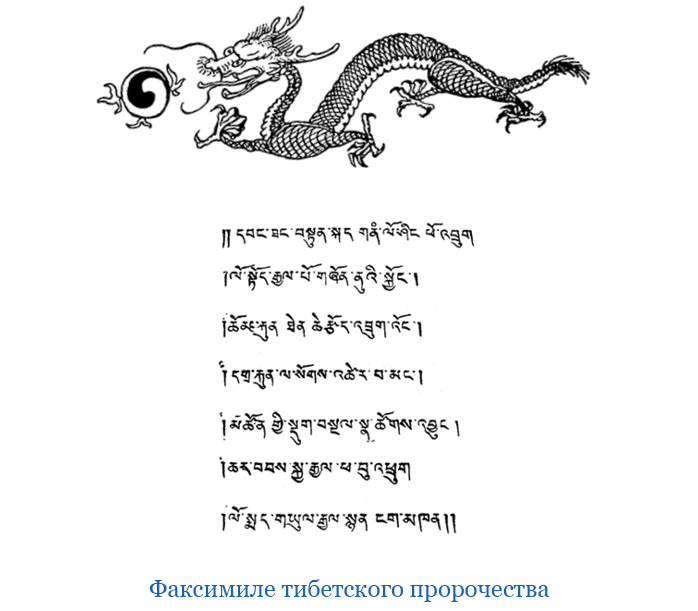 ༎ དབང་ཐང་བསྟུན་སྐད གནཾ་ལོ་ཤིང ཕོ་འབྲུག
།ལོ་སྟོད་རྒྱལ་པོ་གཞོན་ནུའི་སྐྱོང་།
ཐེན་ཆེ་རྩོད་འཛུག་འོང་།
།དགྲ་རྐུན་ལ་སོགས་འཚེ་ར་བ་མང་།
།མཚོན་གྱི་སྡུག་བསྔལ་སྣ་ཚོགས་འབྱུང །
།ཆར་བབས་སྐྱ་རྒྱལ་ཕ་བུ་འཕྲུག
།ལོ་སྨད་གཡུལ་རྒྱལ་སྙན ངག་མཁན།།
Факсимиле тибетского пророчества